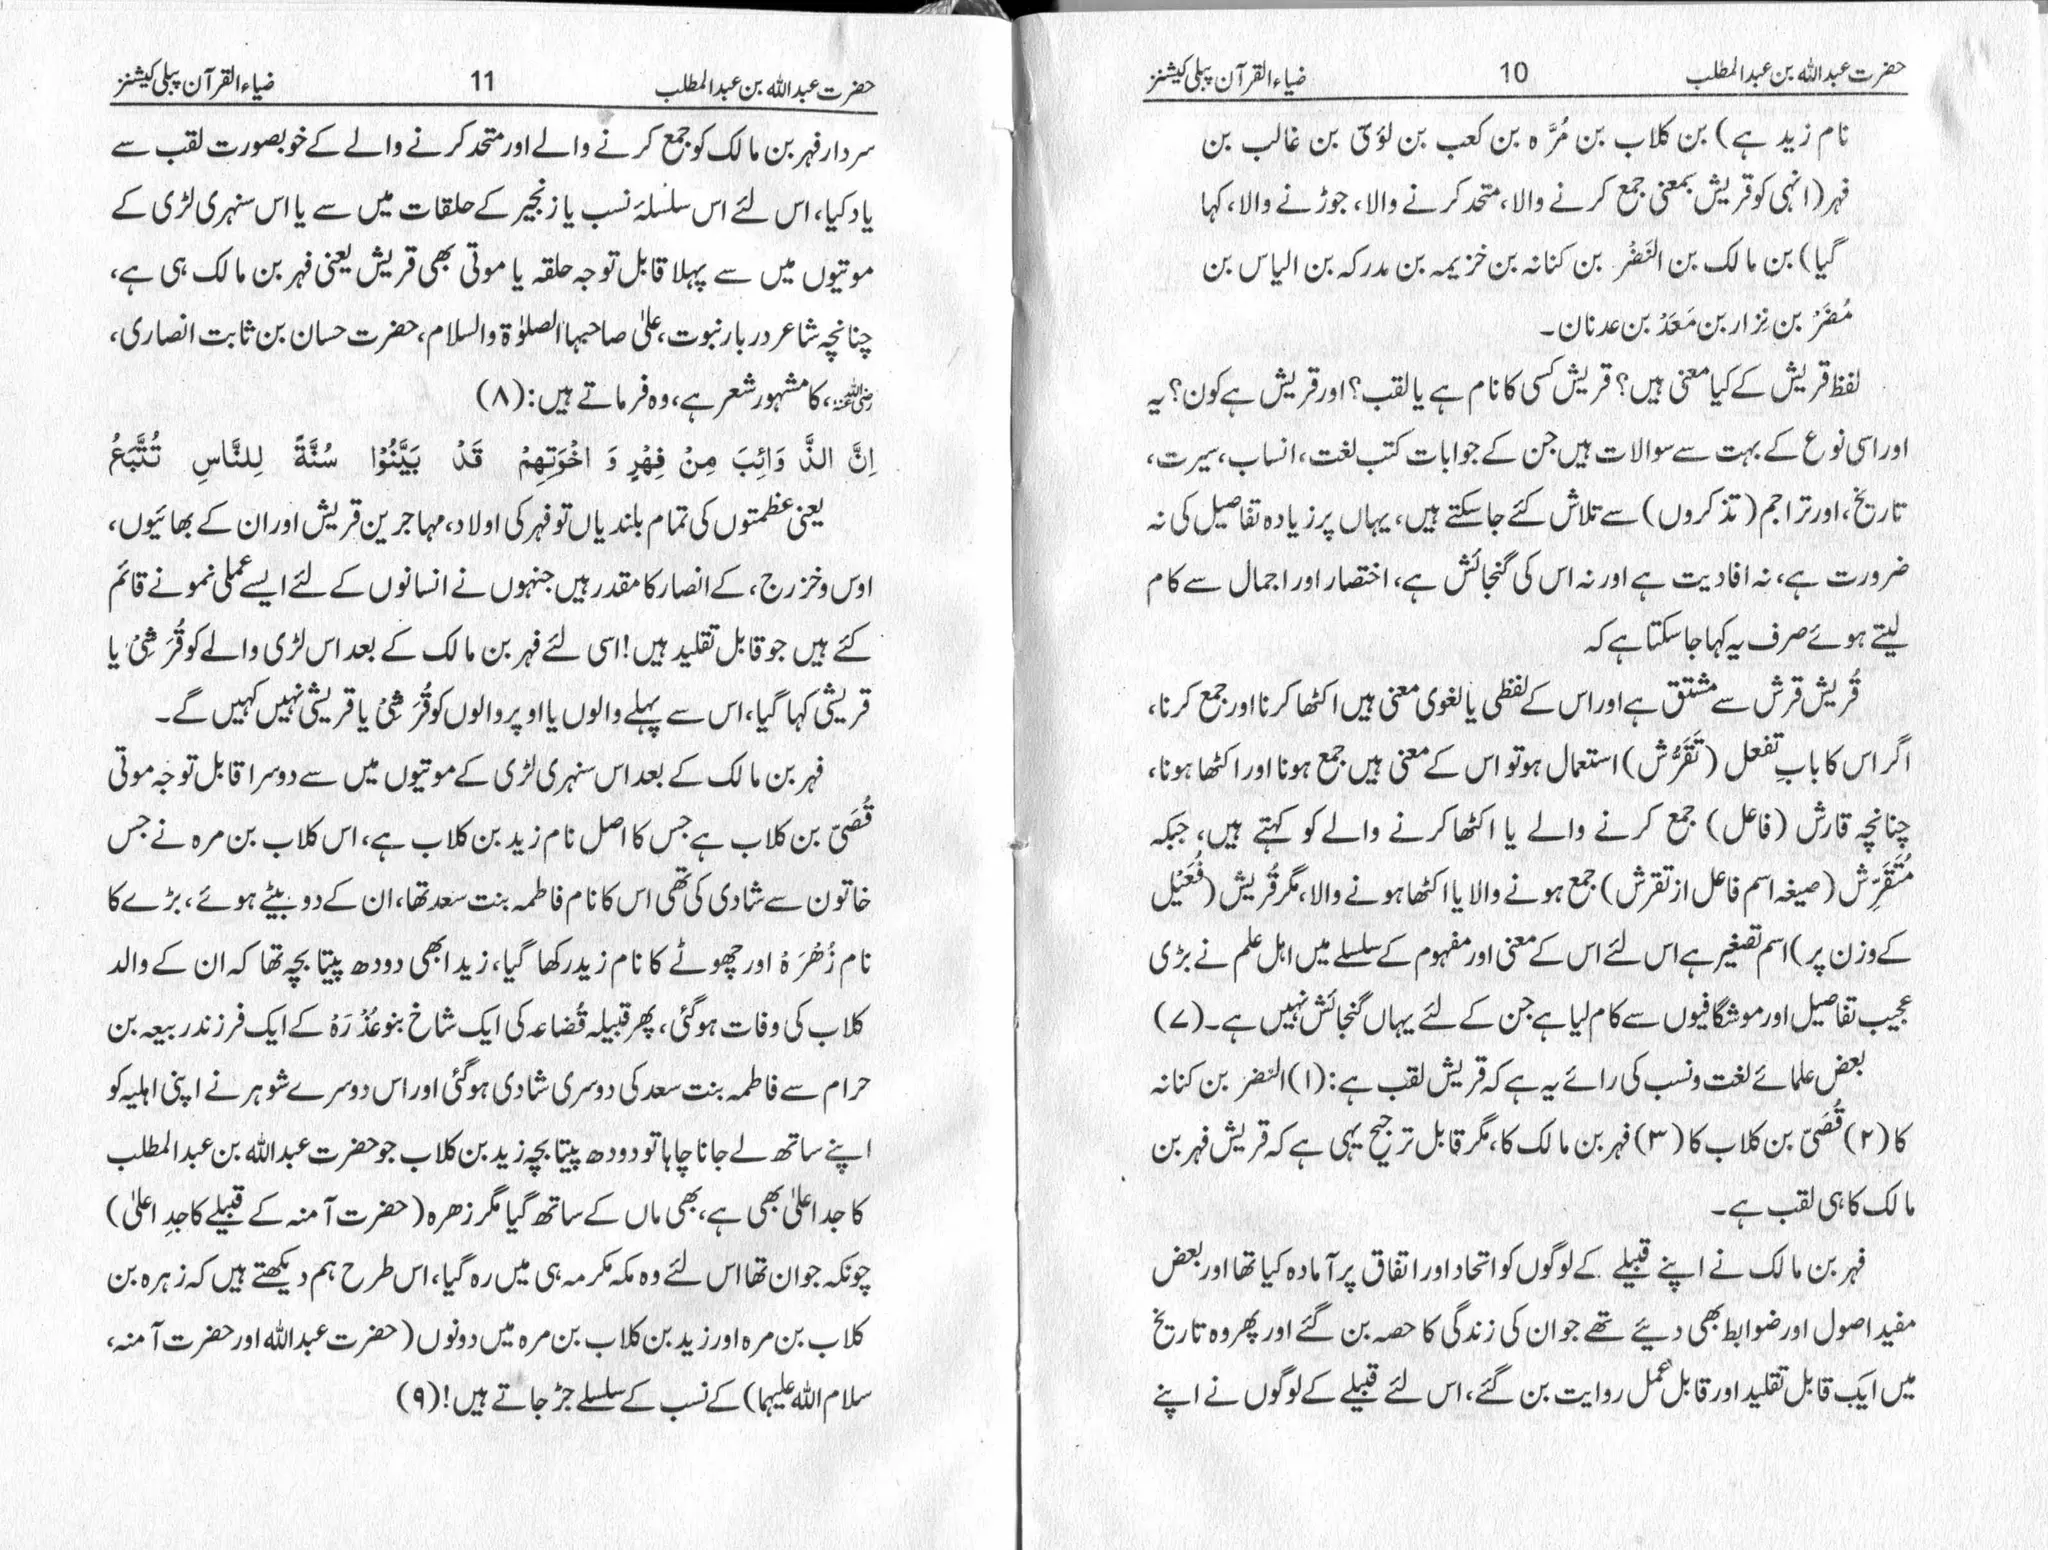 حضرت عبداللہ بن عبدالمطلب 10 ضیاء القرآن پبلی کیشنز
نام زید ہے) بن کلاب بن مُرَّہ بن کعب بن لؤیّ بن غالب بن
فہر (انہی کو قریش بمعنی جمع کرنے والا، متحد کرنے والا، جوڑنے والا، کہا
گیا) بن مالک بن النَضْرْ بن کنانہ بن خزیمہ بن مدرکہ بن الیاس بن
مُضَرْ بن نِزار بن مَعَدْ بن عدنان۔
لفظ قریش کے کیا معنی ہیں؟ قریش کسی کا نام ہے یا لقب؟ اور قریش ہے کون؟ یہ
اور اسی نوع کے بہت سے سوالات ہیں جن کے جوابات کتب لغت، انساب، سیرت،
تاریخ، اور تراجم (تذکروں) سے تلاش کئے جا سکتے ہیں، یہاں پر زیادہ تفاصیل کی نہ
ضرورت ہے، نہ افادیت ہے اور نہ اس کی گنجائش ہے، اختصار اور اجمال سے کام
لیتے ہوئے صرف یہ کہا جا سکتا ہے کہ
قُریش قرش سے مشتق ہے اور اس کے لفظی یا لغوی معنی ہیں اکٹھا کرنا اور جمع کرنا،
اگر اس کا بابِ تفعل (تَقَرُّش) استعمال ہو تو اس کے معنی ہیں جمع ہونا اور اکٹھا ہونا،
چنانچہ قارش (فاعل) جمع کرنے والے یا اکٹھا کرنے والے کو کہتے ہیں، جبکہ
مُتَقَرِّش (صیغہ اسم فاعل از تقرش) جمع ہونے والا یا اکٹھا ہونے والا، مگر قُریش (فُعَیْل
کے وزن پر) اسم تصغیر ہے اس لئے اس کے معنی اور مفہوم کے سلسلے میں اہل علم نے بڑی
عجیب تفاصیل اور موشگافیوں سے کام لیا ہے جن کے لئے یہاں گنجائش نہیں ہے۔ (۷)
بعض علمائے لغت و نسب کی رائے یہ ہے کہ قریش لقب ہے: (۱) النضر بن کنانہ
کا (۲) قُصَیّ بن کلاب کا (۳) فہر بن مالک کا، مگر قابل ترجیح یہی ہے کہ قریش فہر بن
مالک کا ہی لقب ہے۔
فہر بن مالک نے اپنے قبیلے کے لوگوں کو اتحاد اور اتفاق پر آمادہ کیا تھا اور بعض
مفید اصول اور ضوابط بھی دیئے تھے جو ان کی زندگی کا حصہ بن گئے اور پھر وہ تاریخ
میں ایک قابل تقلید اور قابل عمل روایت بن گئے، اس لئے قبیلے کے لوگوں نے اپنے
حضرت عبداللہ بن عبدالمطلب 11 ضیاء القرآن پبلی کیشنز
سردار فہر بن مالک کو جمع کرنے والے اور متحد کرنے والے کے خوبصورت لقب سے
یاد کیا، اس لئے اس سلسلۂ نسب یا زنجیر کے حلقات میں سے یا اس سنہری لڑی کے
موتیوں میں سے پہلا قابل توجہ حلقہ یا موتی بھی قریش یعنی فہر بن مالک ہی ہے،
چنانچہ شاعر دربار نبوت، علیٰ صاحبہا الصلوٰۃ والسلام، حضرت حسان بن ثابت انصاری،
رضی اللہ عنہ، کا مشہور شعر ہے، وہ فرماتے ہیں: (۸)
اِنَّ الذَّ وَائِبَ مِنْ فِهْرٍ وَ اخْوَتِهِمْ قَدْ بَيَّنُوْا سُنَّةً لِلنَّاسِ تُتَّبَعُ
یعنی عظمتوں کی تمام بلندیاں تو فہر کی اولاد، مہاجرین قریش اور ان کے بھائیوں،
اوس و خزرج، کے انصار کا مقدر ہیں جنہوں نے انسانوں کے لئے ایسے عملی نمونے قائم
کئے ہیں جو قابل تقلید ہیں! اسی لئے فہر بن مالک کے بعد اس لڑی والے کو قُرَشِیْ یا
قریشی کہا گیا، اس سے پہلے والوں یا اوپر والوں کو قُرَشِیْ یا قریشی نہیں کہیں گے۔
فہر بن مالک کے بعد اس سنہری لڑی کے موتیوں میں سے دوسرا قابل توجہ موتی
قُصَیّ بن کلاب ہے جس کا اصل نام زید بن کلاب ہے، اس کلاب بن مرہ نے جس
خاتون سے شادی کی تھی اس کا نام فاطمہ بنت سعد تھا، ان کے دو بیٹے ہوئے، بڑے کا
نام زُھْرَہْ اور چھوٹے کا نام زید رکھا گیا، زید ابھی دودھ پیتا بچہ تھا کہ ان کے والد
کلاب کی وفات ہو گئی، پھر قبیلہ قُضاعہ کی ایک شاخ بنو عُذْرَہْ کے ایک فرزند ربیعہ بن
حرام سے فاطمہ بنت سعد کی دوسری شادی ہو گئی اور اس دوسرے شوہر نے اپنی اہلیہ کو
اپنے ساتھ لے جانا چاہا تو دودھ پیتا بچہ زید بن کلاب جو حضرت عبداللہ بن عبدالمطلب
کا جد اعلیٰ بھی ہے، بھی ماں کے ساتھ گیا مگر زھرہ (حضرت آمنہ کے قبیلے کا جدِ اعلیٰ)
چونکہ جوان تھا اس لئے وہ مکہ مکرمہ ہی میں رہ گیا، اس طرح ہم دیکھتے ہیں کہ زہرہ بن
کلاب بن مرہ اور زید بن کلاب بن مرہ میں دونوں (حضرت عبداللہ اور حضرت آمنہ،
سلام اللہ علیہما) کے نسب کے سلسلے جڑ جاتے ہیں! (۹)